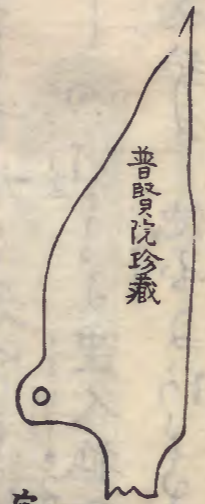 普賢院珍藏